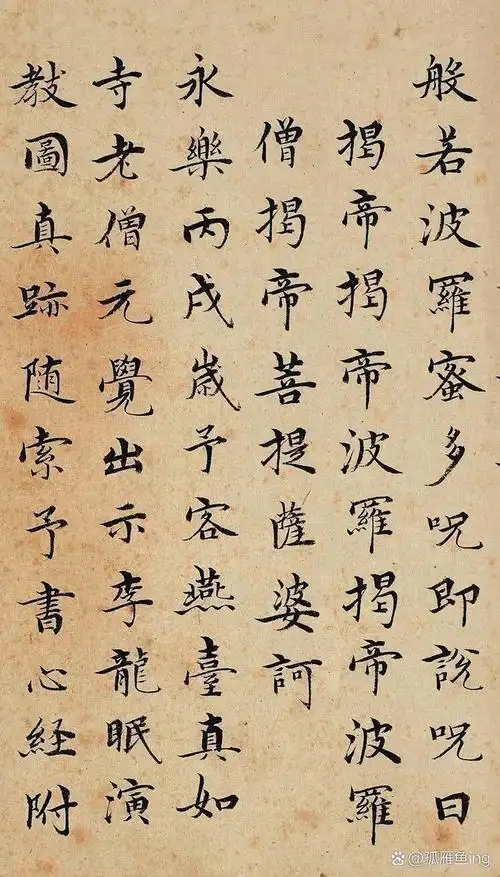 般若波羅蜜多呪即說呪曰
揭帝揭帝波羅揭帝波羅
僧揭帝菩提薩婆訶
永樂丙戌歲予客燕臺真如
寺老僧元覺出示李龍眠演
教圖真跡随索予書心経附
@孤雁鱼ing